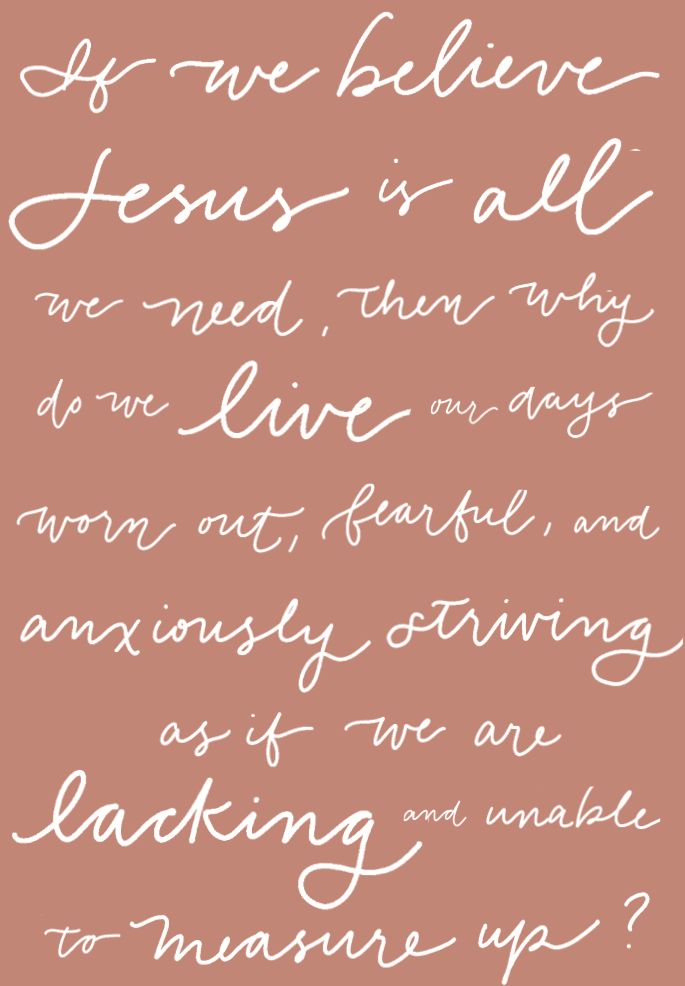 If we believe
Jesus is all
we need, then why
do we live our days
worn out, fearful, and
anxiously striving
as if we are
lacking and unable
to measure up?